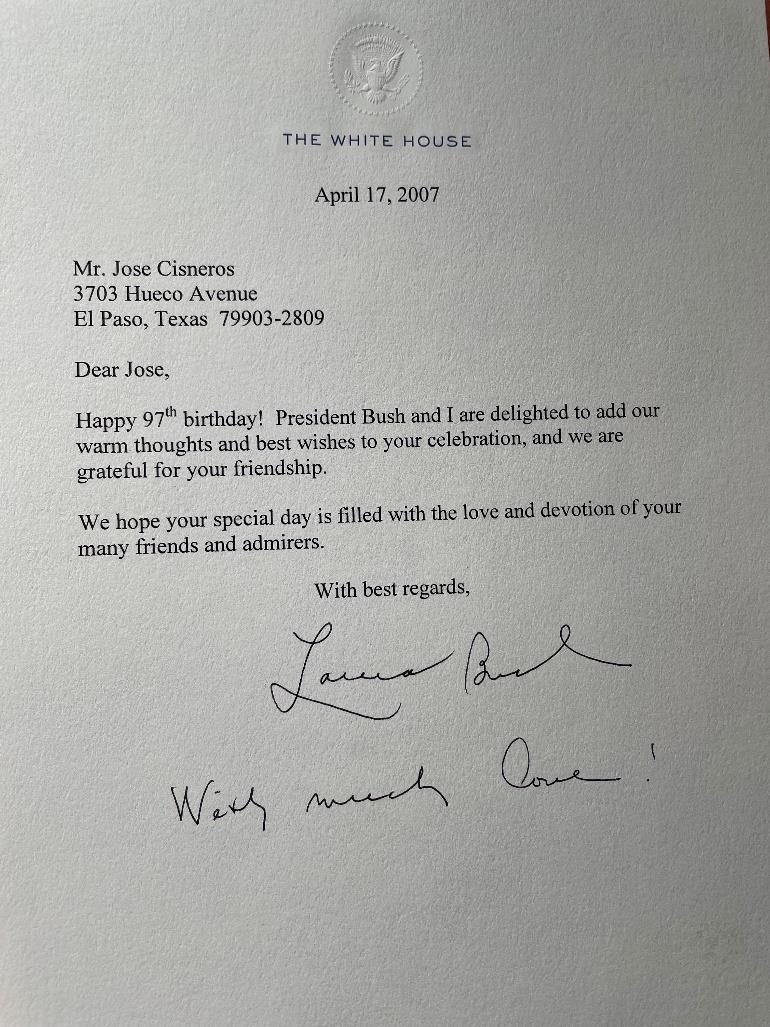 THE WHITE HOUSE
April 17, 2007
Mr. Jose Cisneros
3703 Hueco Avenue
El Paso, Texas 79903-2809
Dear Jose,
Happy 97th birthday! President Bush and I are delighted to add our
warm thoughts and best wishes to your celebration, and we are
grateful for your friendship.
We hope your special day is filled with the love and devotion of your
many friends and admirers.
With best regards,
Laura Bush
With much love!